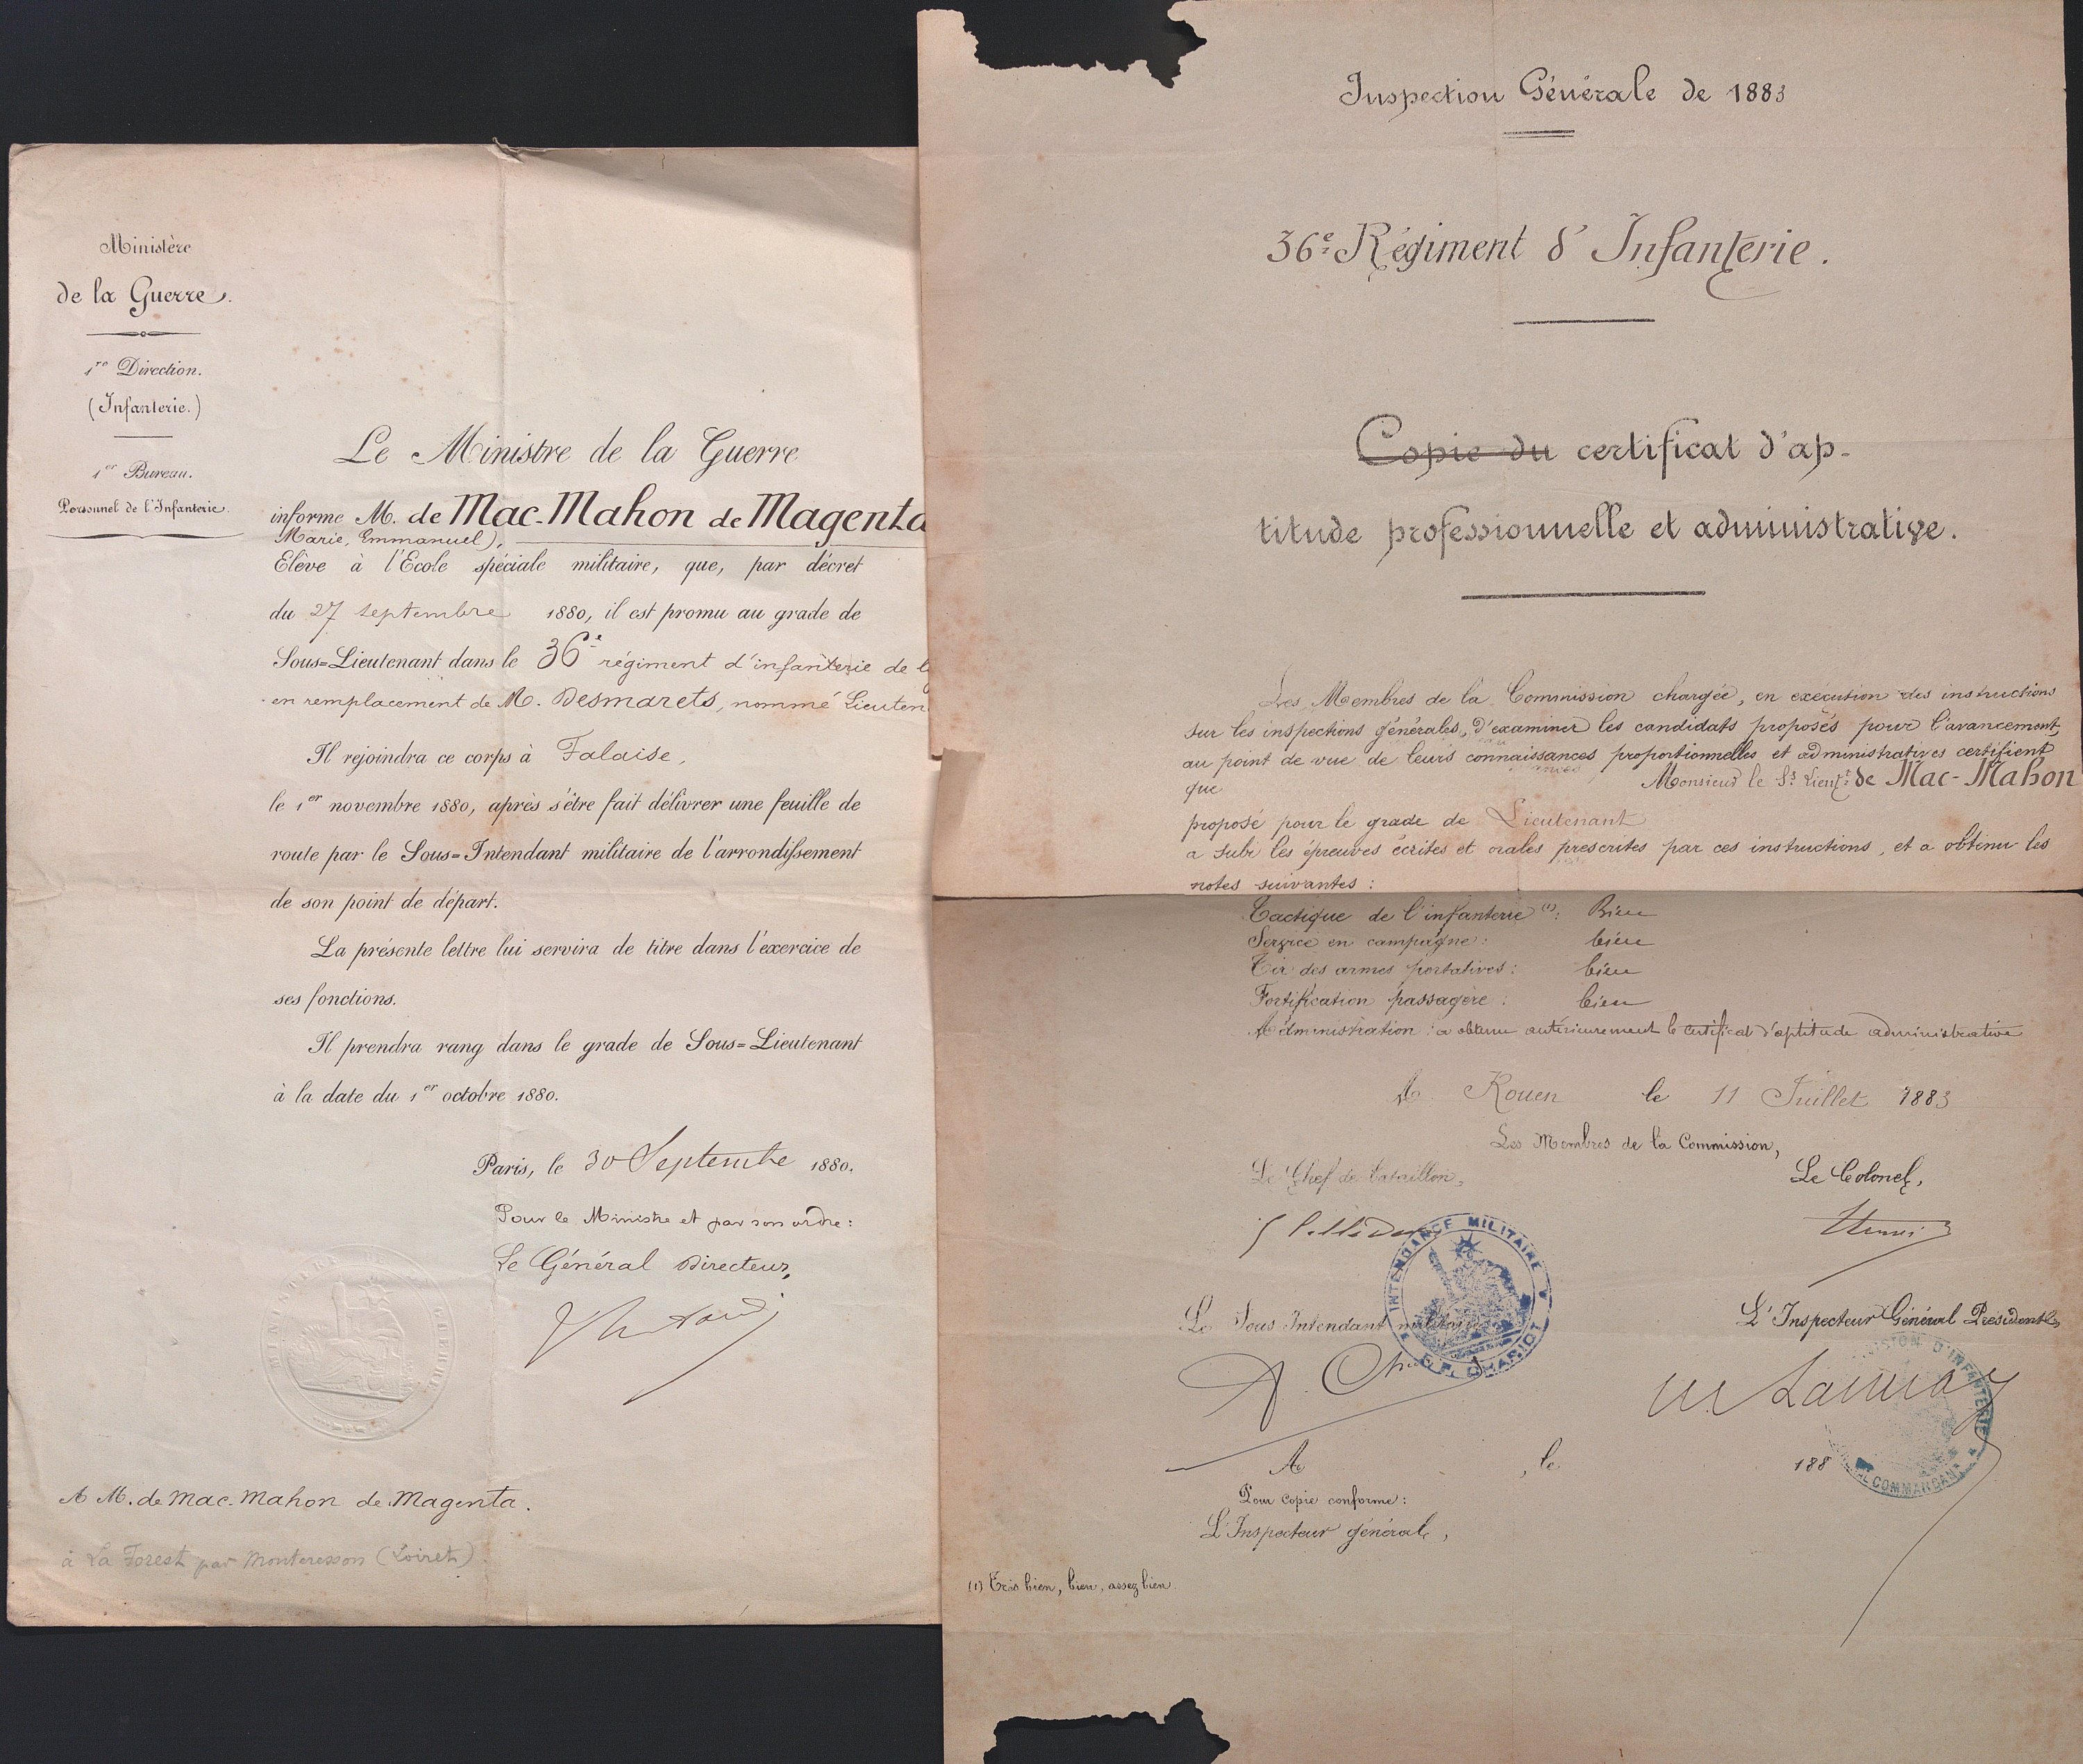 Ministère
de la Guerre.
1re Direction.
(Infanterie.)
1er Bureau.
Personnel de l'Infanterie.
Le Ministre de la Guerre
informe M. de Mac-Mahon de Magenta
Marie, Emmanuel),
Elève à l'Ecole spéciale militaire, que, par décret
du 27 septembre 1880, il est promu au grade de
Sous=Lieutenant dans le 36e régiment d'infanterie de
en remplacement de M. Desmarets, nommé Lieuten
Il rejoindra ce corps à Falaise,
le 1er novembre 1880, après s'être fait délivrer une feuille de
route par le Sous=Intendant militaire de l'arrondissement
de son point de départ.
La présente lettre lui servira de titre dans l'exercice de
ses fonctions.
Il prendra rang dans le grade de Sous=Lieutenant
à la date du 1er octobre 1880.
Paris, le 30 Septembre 1880.
Pour le Ministre et par son ordre:
Le Général Directeur,
MINISTÈRE GUERRE
A M. de Mac-Mahon de Magenta.
à La Forest par Montcresson (Loiret)
Inspection Générale de 1883
36e Régiment d'Infanterie.
Copie du certificat d'ap-
titude professionnelle et administrative.
Les Membres de la Commission chargée, en exécution des instructions
sur les inspections générales, d'examiner les candidats proposés pour l'avancement,
au point de vue de leurs connaissances proportionnelles et administratives certifient
que Monsieur le Ss Lieut. de Mac-Mahon
proposé pour le grade de Lieutenant
a subi les épreuves écrites et orales prescrites par ces instructions, et a obtenu les
notes suivantes:
Tactique de l'infanterie (1): Bien
Service en campagne: bien
Tir des armes portatives: bien
Fortification passagère: bien
Administration: a obtenu antérieurement le certificat d'aptitude administrative
A Rouen le 11 Juillet 1883
Les Membres de la Commission,
Le Chef de bataillon, Le Colonel,
INTENDANCE MILITAIRE
Le Sous Intendant militaire L'Inspecteur Général Président,
DIVISION D'INFANTERIE
COMMANDANT
A , le 188
Pour copie conforme:
L'Inspecteur général,
(1) Très bien, bien, assez bien.